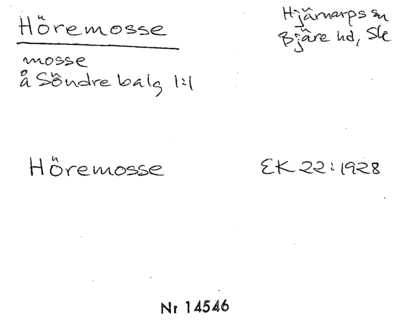 Höremosse
Hjärnarps sn
Bjäre hd, Sk
mosse
å Söndre balg 1:1
Höremosse
EK 22:1928
Nr 14546